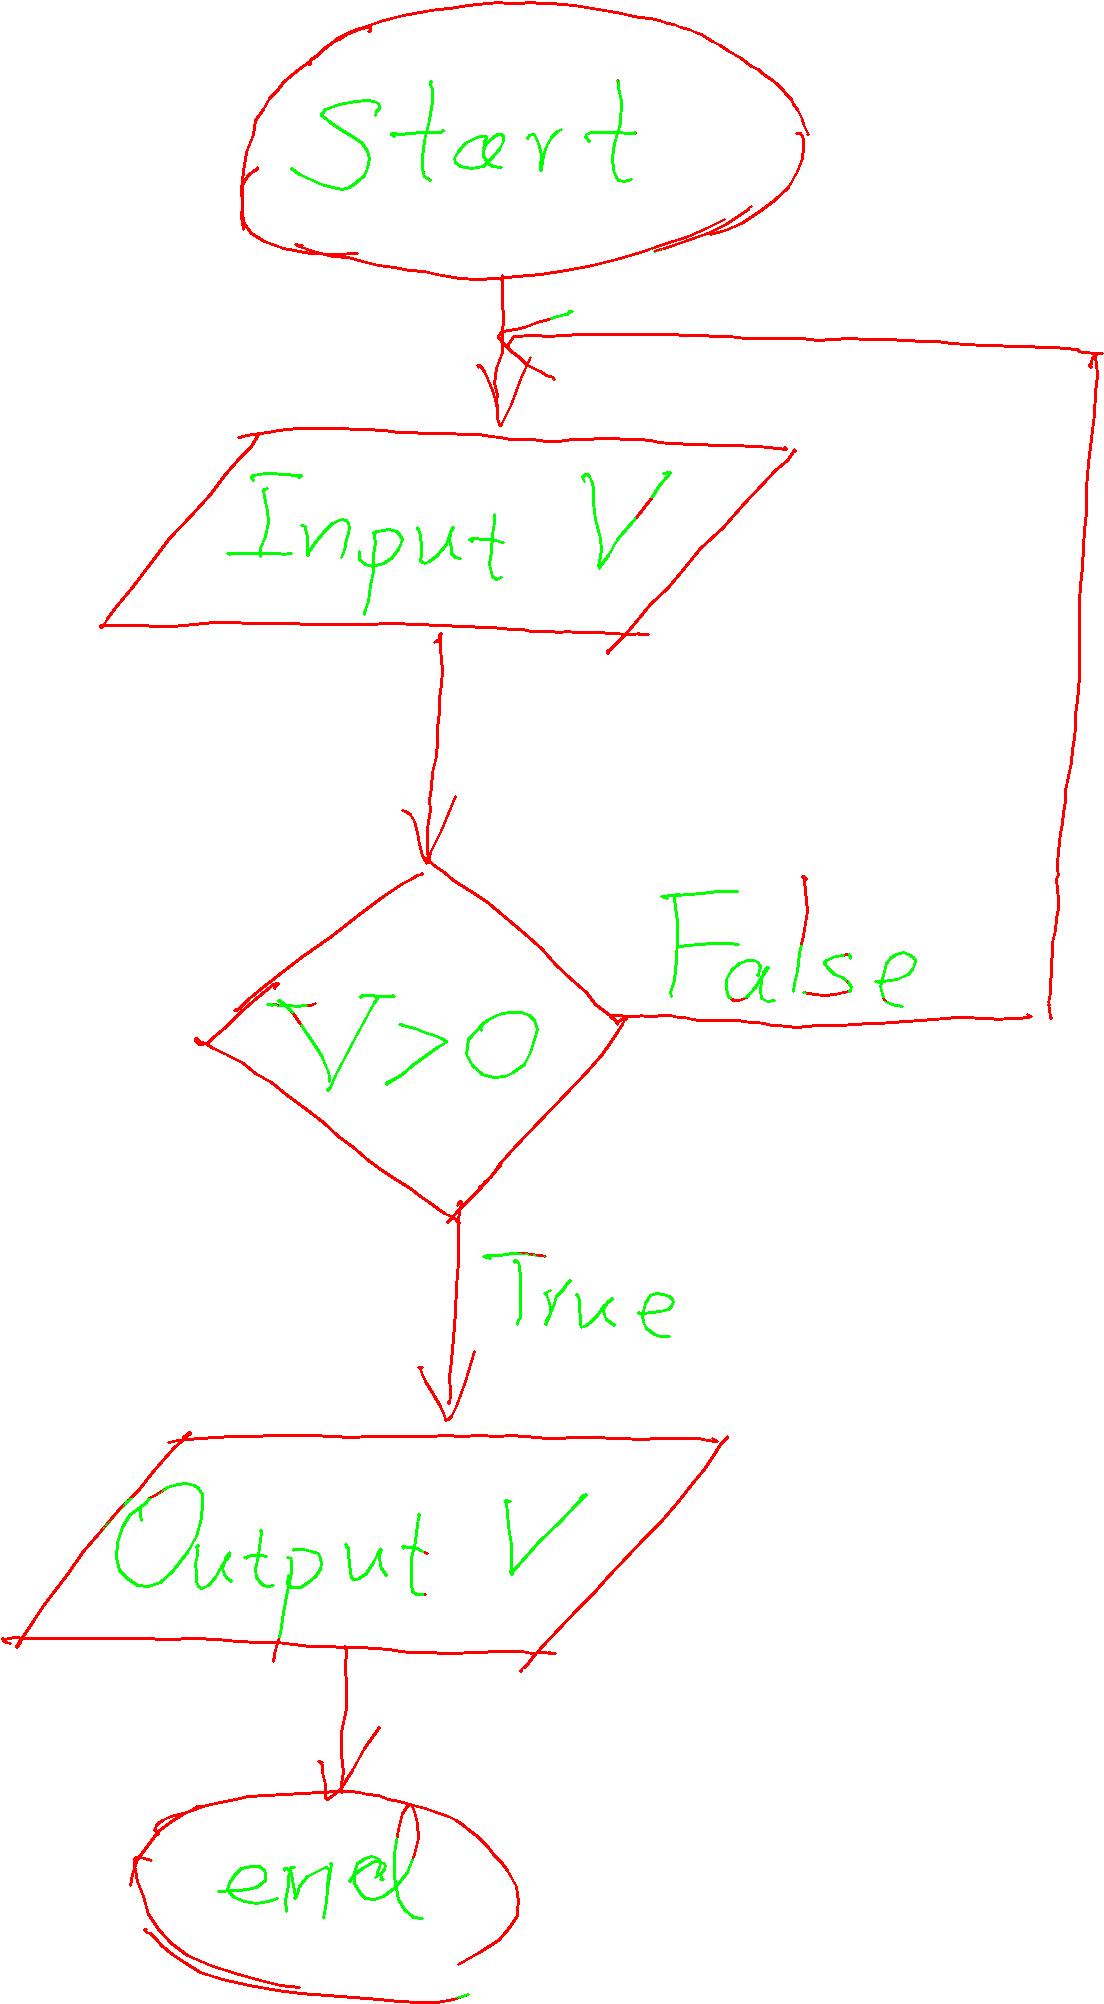 Start
Input V
False
V>0
True
Output V
end